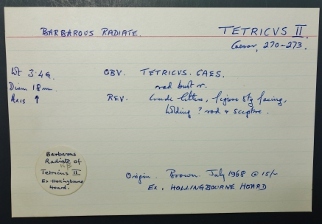 BARBAROUS RADIATE. TETRICVS II.
Caesar, 270-273.
Wt 3.4g. OBV. TETRICVS. CAES.
Diam 18m. rad bust r.
Axis ↑ REV. Crude letters, figure stg facing,
holding ? rod & sceptre.
Barbarous
Radiate of
Tetricus II
Ex Hollingbourne
Hoard.
Origin. Brown July 1968 @ 15/-
Ex. HOLLINGBOURNE HOARD